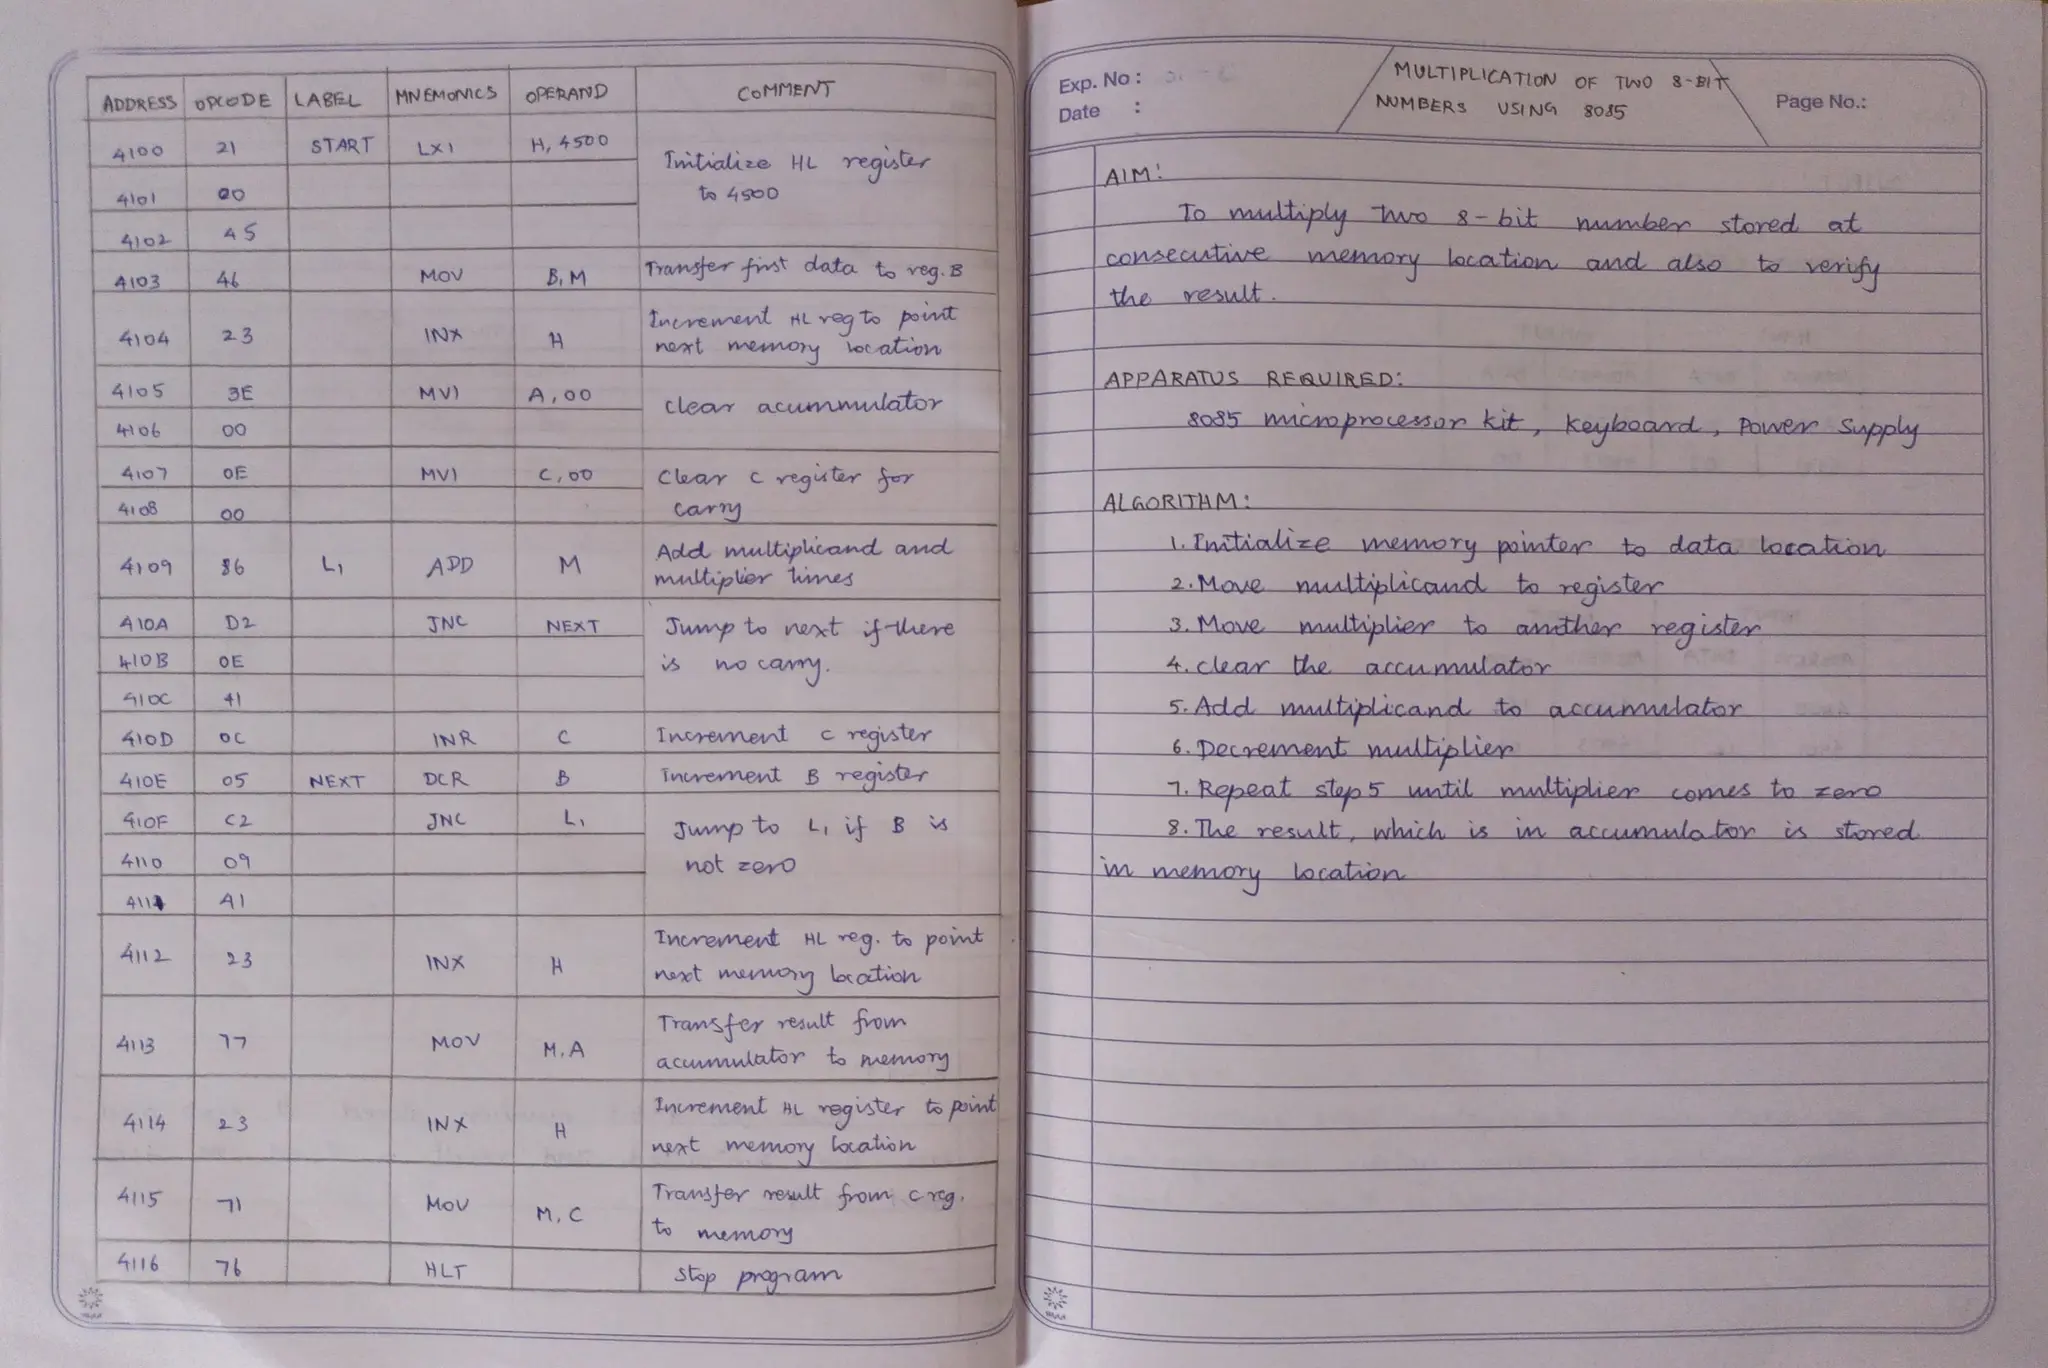 ADDRESS OPCODE LABEL MNEMONICS OPERAND COMMENT
4100 21 START LXI H, 4500 Initialize HL register
4101 00 to 4500
4102 45
4103 46 MOV B, M Transfer first data to reg. B
4104 23 INX H Increment HL reg to point
next memory location
4105 3E MVI A, 00 clear acummulator
4106 00
4107 0E MVI C, 00 Clear C register for
4108 00 carry
4109 86 L1 ADD M Add multiplicand and
multiplier times
410A D2 JNC NEXT Jump to next if there
410B 0E is no carry.
410C 41
410D 0C INR C Increment C register
410E 05 NEXT DCR B Increment B register
410F C2 JNC L1 Jump to L1 if B is
4110 09 not zero
4111 A1
4112 23 INX H Increment HL reg. to point
next memory location
4113 77 MOV M, A Transfer result from
accumulator to memory
4114 23 INX H Increment HL register to point
next memory location
4115 71 MOV M, C Transfer result from C reg.
to memory
4116 76 HLT Stop program
Exp. No :
Date :
MULTIPLICATION OF TWO 8-BIT
NUMBERS USING 8085
Page No.:
AIM:
To multiply two 8-bit number stored at
consecutive memory location and also to verify
the result.
APPARATUS REQUIRED:
8085 microprocessor kit, keyboard, Power Supply
ALGORITHM:
1. Initialize memory pointer to data location
2. Move multiplicand to register
3. Move multiplier to another register
4. clear the accumulator
5. Add multiplicand to accumulator
6. Decrement multiplier
7. Repeat step 5 until multiplier comes to zero
8. The result, which is in accumulator is stored
in memory location